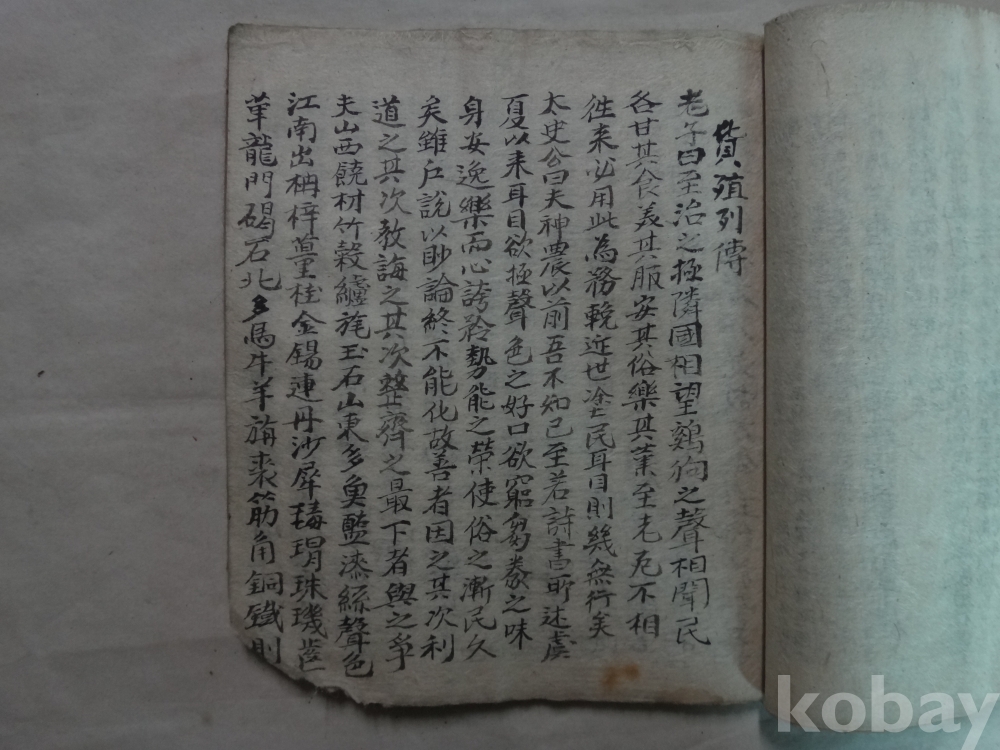 貨殖列傳
老子曰至治之極隣國相望鷄狗之聲相聞民
各甘其食美其服安其俗樂其業至老死不相
徃来必用此為務輓近世塗民耳目則幾無行矣
太史公曰夫神農以前吾不知已至若詩書所述虞
夏以来耳目欲極聲色之好口欲窮芻豢之味
身安逸樂而心誇矜勢能之榮使俗之漸民久
矣雖戶說以眇論終不能化故善者因之其次利
道之其次教誨之其次整齊之最下者與之爭
夫山西饒材竹穀纑旄玉石山東多魚鹽漆絲聲色
江南出枏梓薑桂金錫連丹沙犀瑇瑁珠璣齒
革龍門碣石北多馬牛羊旃裘筋角銅鐵則
kobay